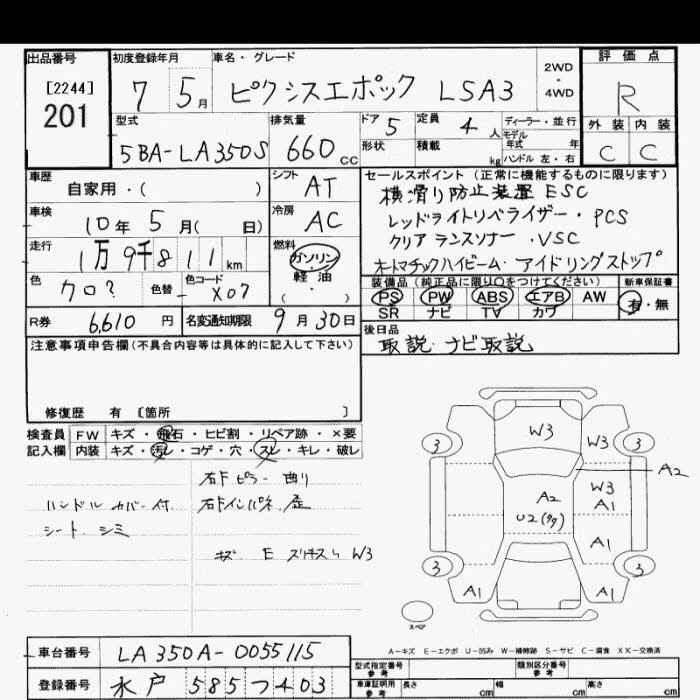 出品番号 初度登録年月 車名・グレード 2WD・4WD 評価点
[2244] 201 7 5月 ピクシスエポック LSA3 R
型式 排気量 ドア 5 定員 4人 ディーラー・並行 外装 内装
5BA-LA350S 660cc 形状 積載 kg モデル年式 年 ハンドル 左・右 C C
車歴 自家用・( ) シフト AT セールスポイント (正常に機能するものに限ります)
横滑り防止装置 ESC
車検 10年 5月( 日) 冷房 AC
レッドライトリベライザー・PCS
クリアランスソナー・VSC
走行 1万9千811km 燃料 ガソリン・軽油・
オートマチックハイビーム・アイドリングストップ
色 クロ? 色替 カラーコード X07
装備品 (純正品に限り○をつけてください) 新車保証書
PS PW ABS エアB AW 有・無
SR ナビ TV カワ
R券 6,610円 名変通知期限 9月30日
後日品 取説・ナビ取説
注意事項申告欄(不具合内容等は具体的に記入して下さい)
修復歴 有 [箇所 ]
検査員記入欄 FW キズ・飛石・ヒビ割・リペア跡・×要
内装 キズ・汚レ・コゲ・穴・スレ・キレ・破レ
ハンドルカバー付
シート シミ
右Fピラー 曲り
右Fインパネ 歪
キズ E スリキズ W3
W3
3 W3 3
A2
W3
A2 A1
U2
A1
3 3
A1 A1
スペア
A-キズ E-エクボ U-凹み W-補修跡 S-サビ C-腐食 XX-交換済
車台番号 LA350A-0055115
型式指定番号 参考 類別区分番号 参考
登録番号 水戸 585つ403
車庫証明用 参考 長さ cm 幅 cm 高さ cm